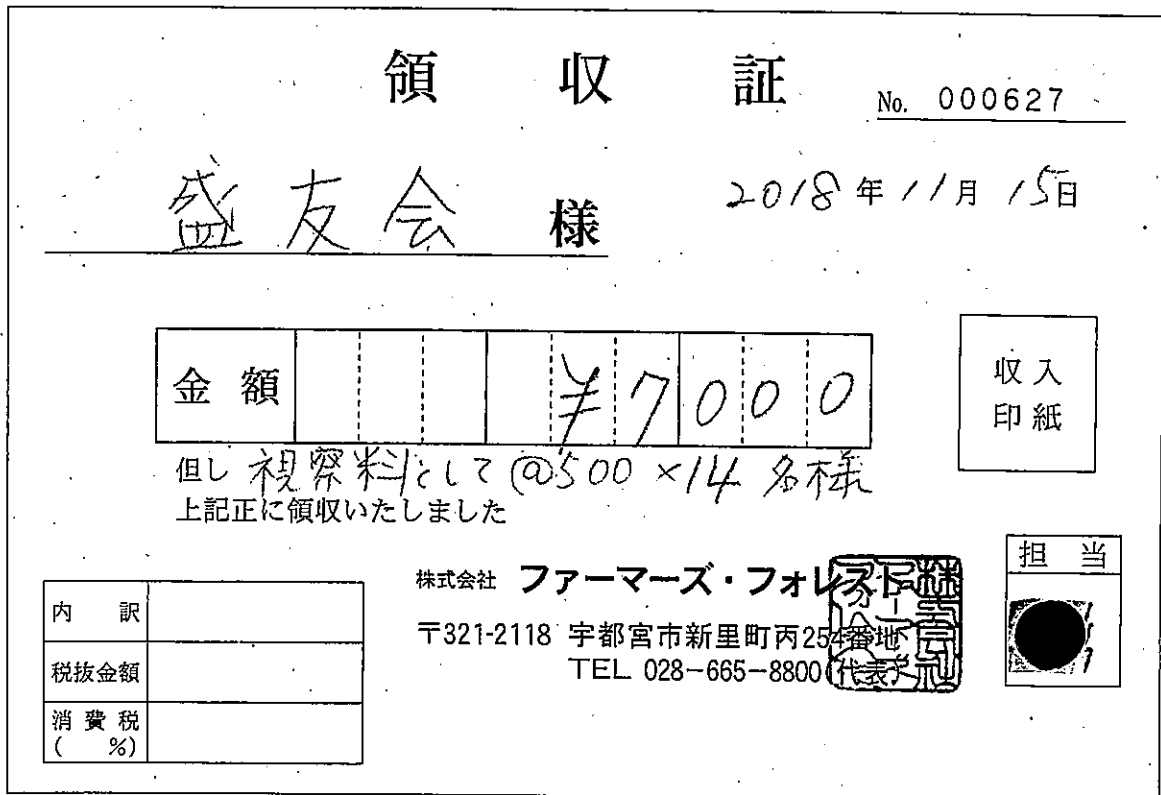 領収証
No. 000627
盛友会 様
2018年11月15日
金額 ¥7000
収入
印紙
但し 視察料として@500×14名様
上記正に領収いたしました
株式会社 ファーマーズ・フォレスト
〒321-2118 宇都宮市新里町丙254番地
TEL 028-665-8800(代表)
担当
内訳
税抜金額
消費税
( %)